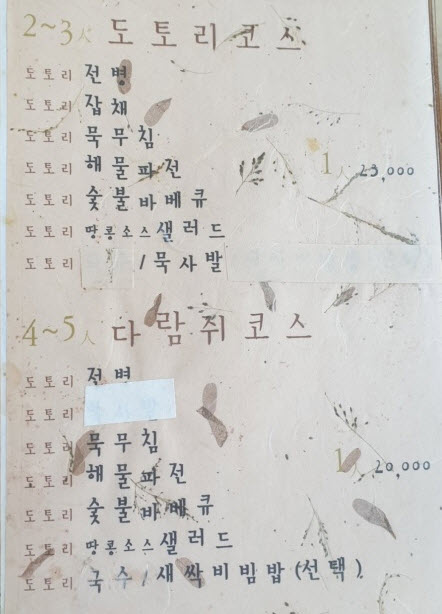 2~3人 도토리코스
도토리 전병
도토리 잡채
도토리 묵무침
도토리 해물파전 1人 23,000
도토리 숯불바베큐
도토리 땅콩소스샐러드
도토리 / 묵사발
4~5人 다람쥐코스
도토리 전병
도토리
도토리 묵무침
도토리 해물파전 1人 20,000
도토리 숯불바베큐
도토리 땅콩소스샐러드
도토리 국수/새싹비빔밥(선택)